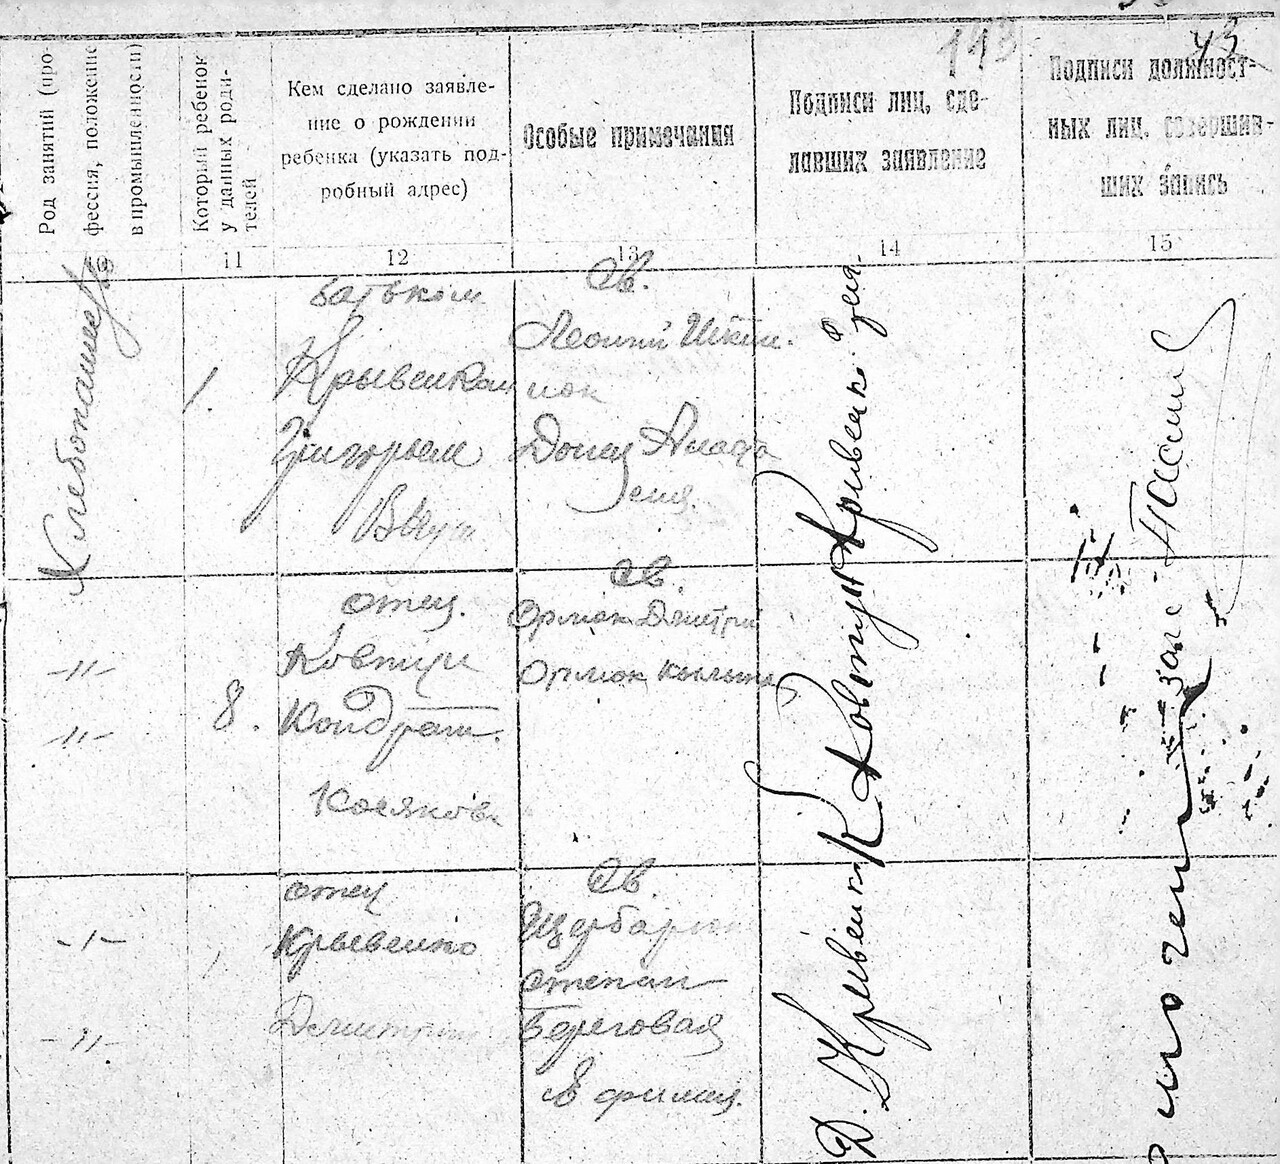 113 43
Род занятий (про-
фессия, положение
в промышленности)
Который ребенок
у данных роди-
телей
Кем сделано заявле-
ние о рождении
ребенка (указать под-
робный адрес)
Особые примечания
Подписи лиц, сде-
лавших заявление
Подписи должност-
ных лиц, совершив-
ших запись
11
12
13
14
15
Хлебопашец
1.
батьком
Крывенком
Григорьем
Св.
Донец Анаста
сия
Кривенко
-"-
-"-
8.
отец.
Ковтун
Кондрат.
Св.
Орлюк Дмитри
Орлюк
К Ковтун
-"-
-"-
отец
Крывенко
Дмитрий
Св.
Щербатюк
Степан
Береговая
Ефимия
Д. Кривенко